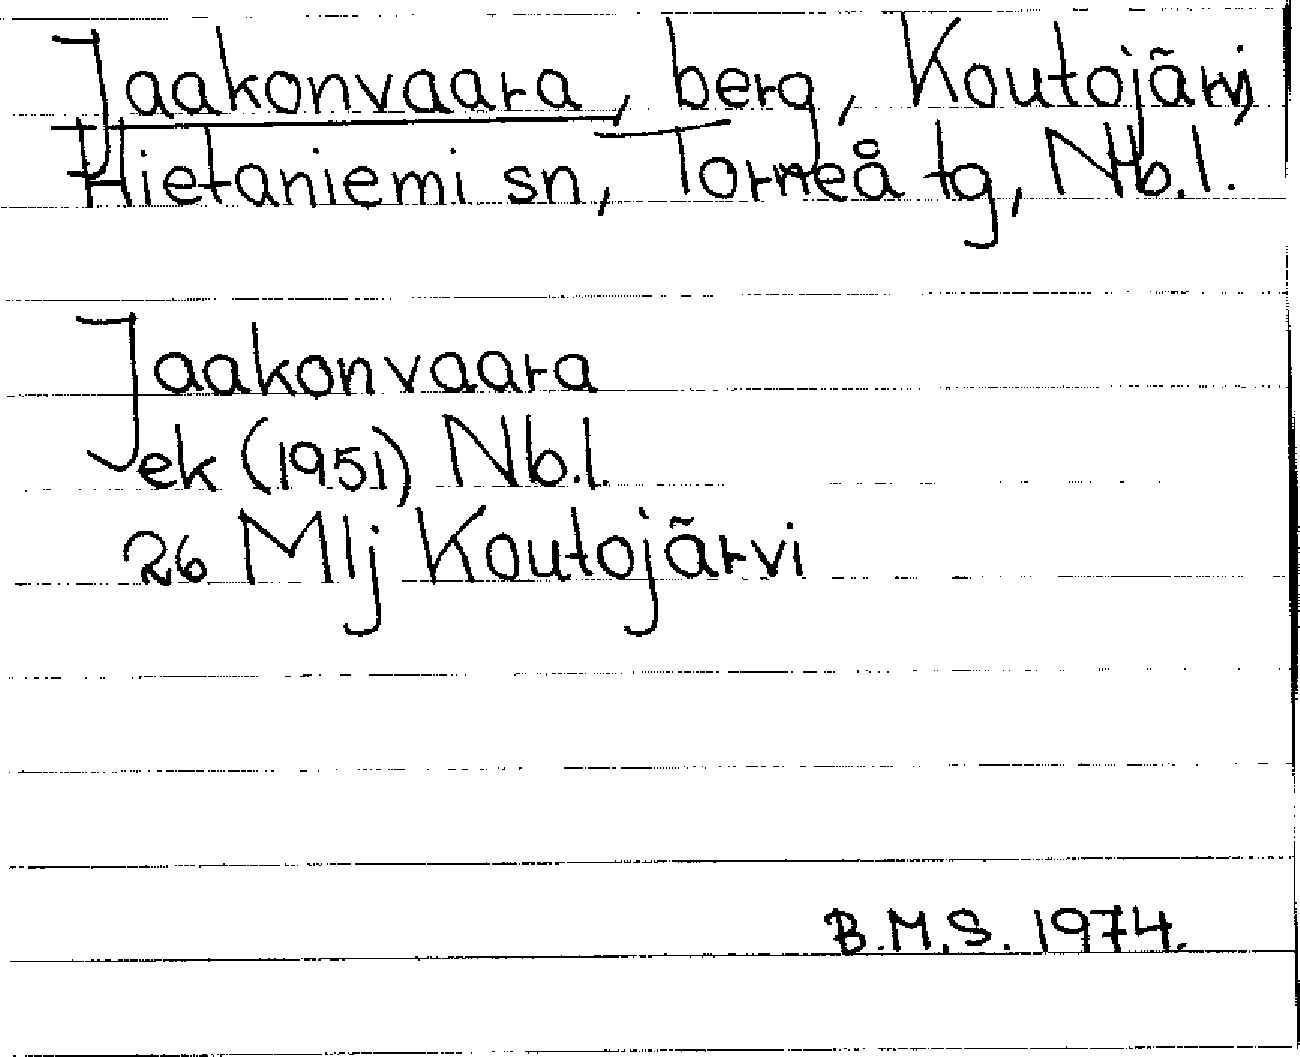 Jaakonvaara, berg, Koutojärvi,
Hietaniemi sn, Torneå tg, Nb.l.
Jaakonvaara
ek (1951) Nb.l.
26 Mlj Koutojärvi
B.M.S. 1974.